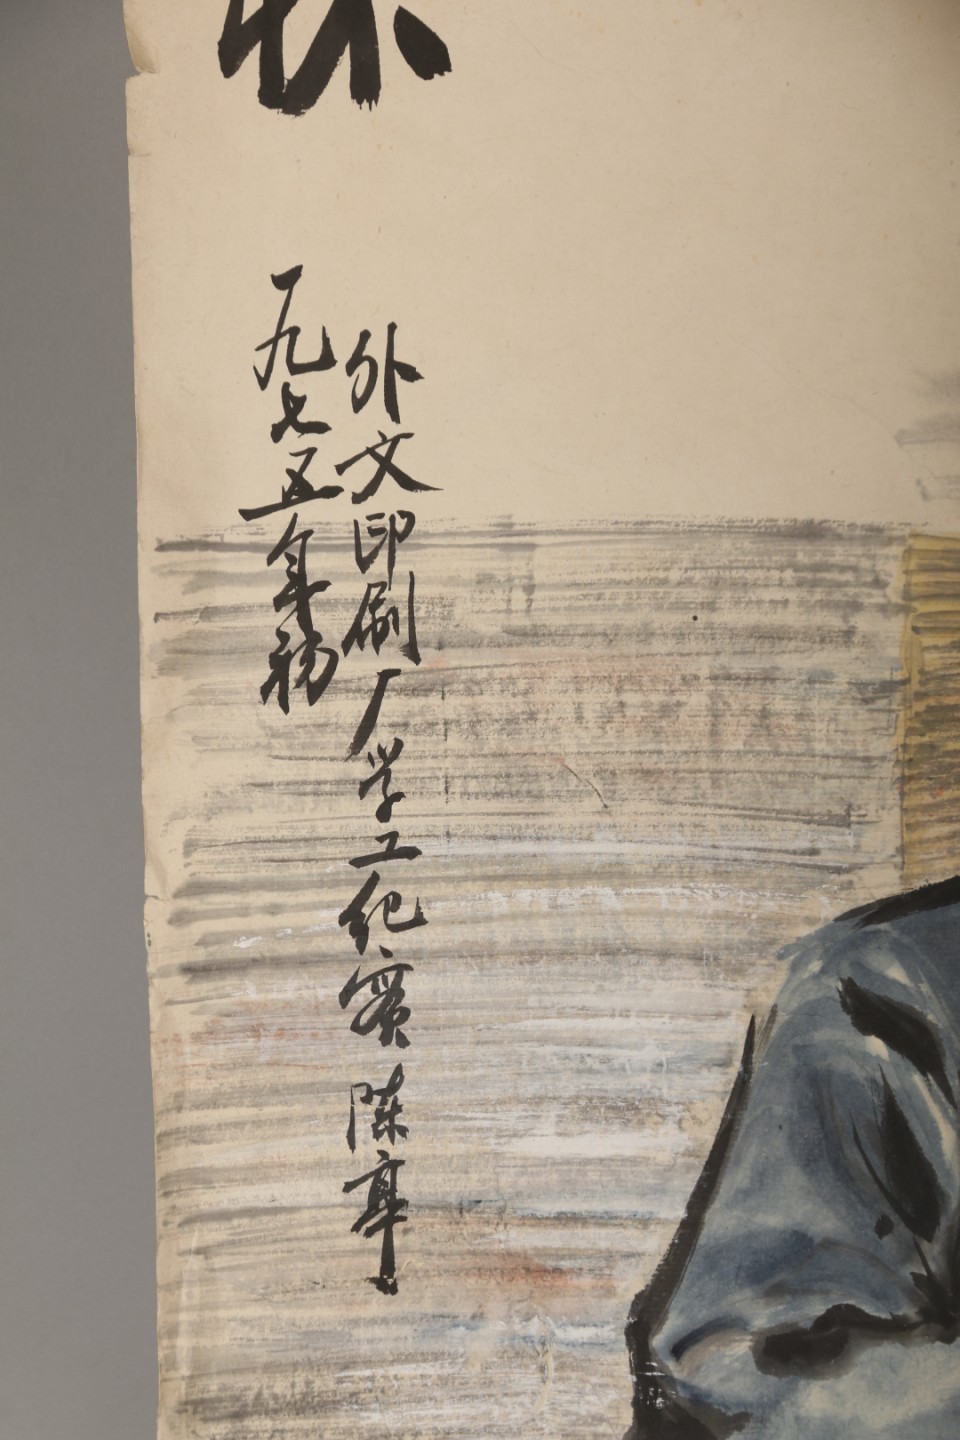 外文印刷厂学工纪實 陈
一九七五年初